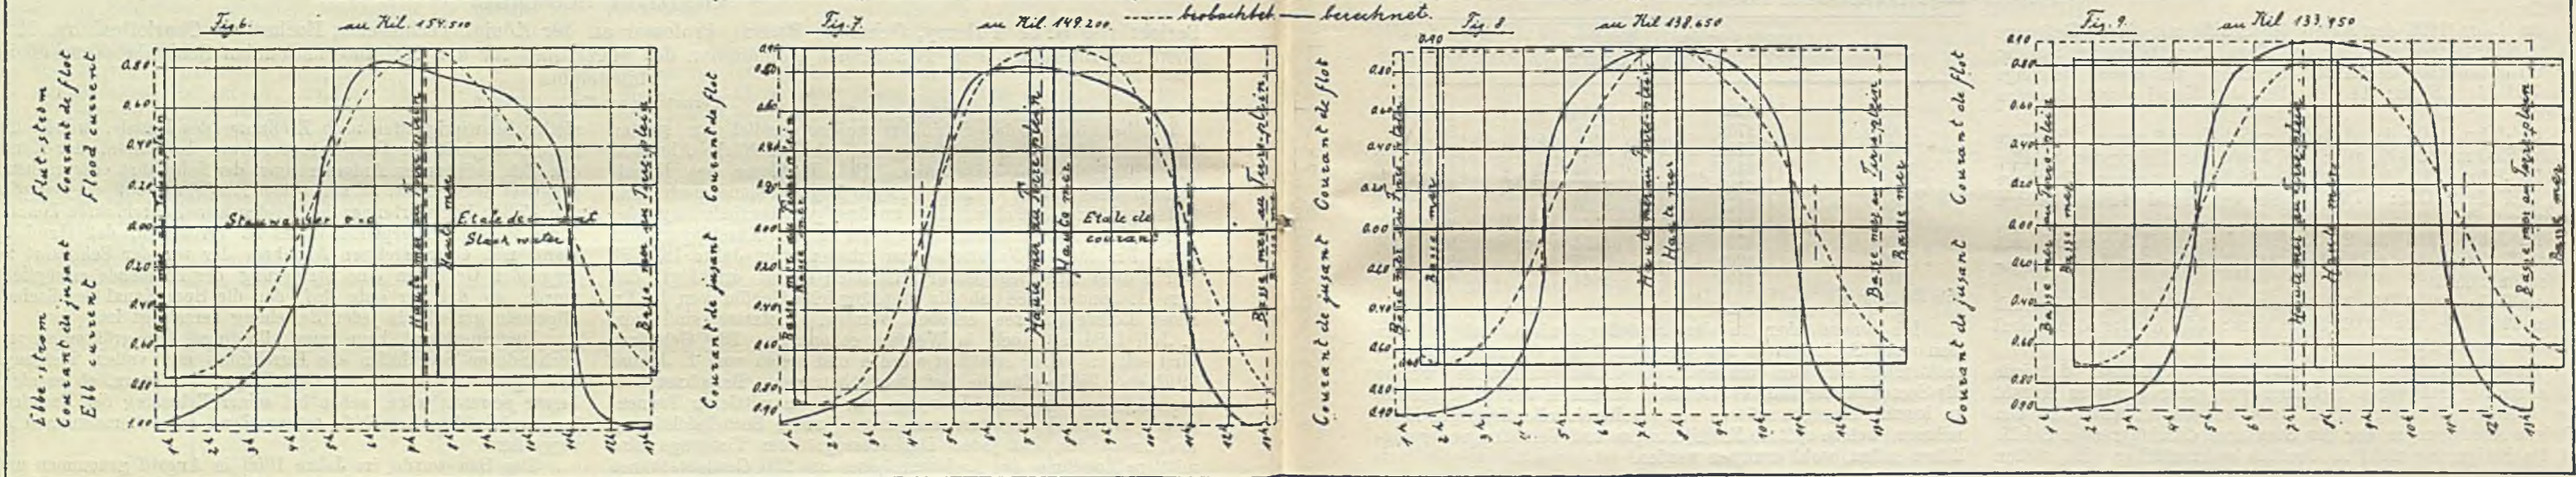 Fig. 6. au Kil. 154.500
Fig. 7. au Kil. 149.200 ----- beobachtet. —— berechnet.
Fig. 8 au Kil 138.650
Fig. 9. au Kil 133.950
Flut-strom
Courant de flot
Flood current
Ebbe-strom
Courant de jusant
Ebb current
0.80
0.60
0.40
0.20
0.00
0.20
0.40
0.60
0.80
1.00
Basse mer au Terre-plein
Stauwasser v=o
Haute mer au Terre-plein
Haute mer
Etale de courant
Slack water
Basse mer au Terre-plein
1h 2h 3h 4h 5h 6h 7h 8h 9h 10h 11h 12h 13h
Courant de flot
Courant de jusant
0.90
0.80
0.60
0.40
0.20
0.00
0.20
0.40
0.60
0.80
0.90
Basse mer au Terre-plein
Basse mer
Haute mer au Terre-plein
Haute mer
Etale de
courant
Basse mer au Terre-plein
1h 2h 3h 4h 5h 6h 7h 8h 9h 10h 11h 12h 13h
Courant de flot
Courant de jusant
0.90
0.80
0.60
0.40
0.20
0.00
0.20
0.40
0.60
0.80
0.90
Basse mer au Terre-plein
Basse mer
Haute mer au Terre-plein
Haute mer
Basse mer au Terre-plein
Basse mer
1h 2h 3h 4h 5h 6h 7h 8h 9h 10h 11h 12h 13h
Courant de flot
Courant de jusant
0.90
0.80
0.60
0.40
0.20
0.00
0.20
0.40
0.60
0.80
0.90
Basse mer au Terre-plein
Basse mer
Haute mer au Terre-plein
Haute mer
Basse mer au Terre-plein
Basse mer
1h 2h 3h 4h 5h 6h 7h 8h 9h 10h 11h 12h 13h